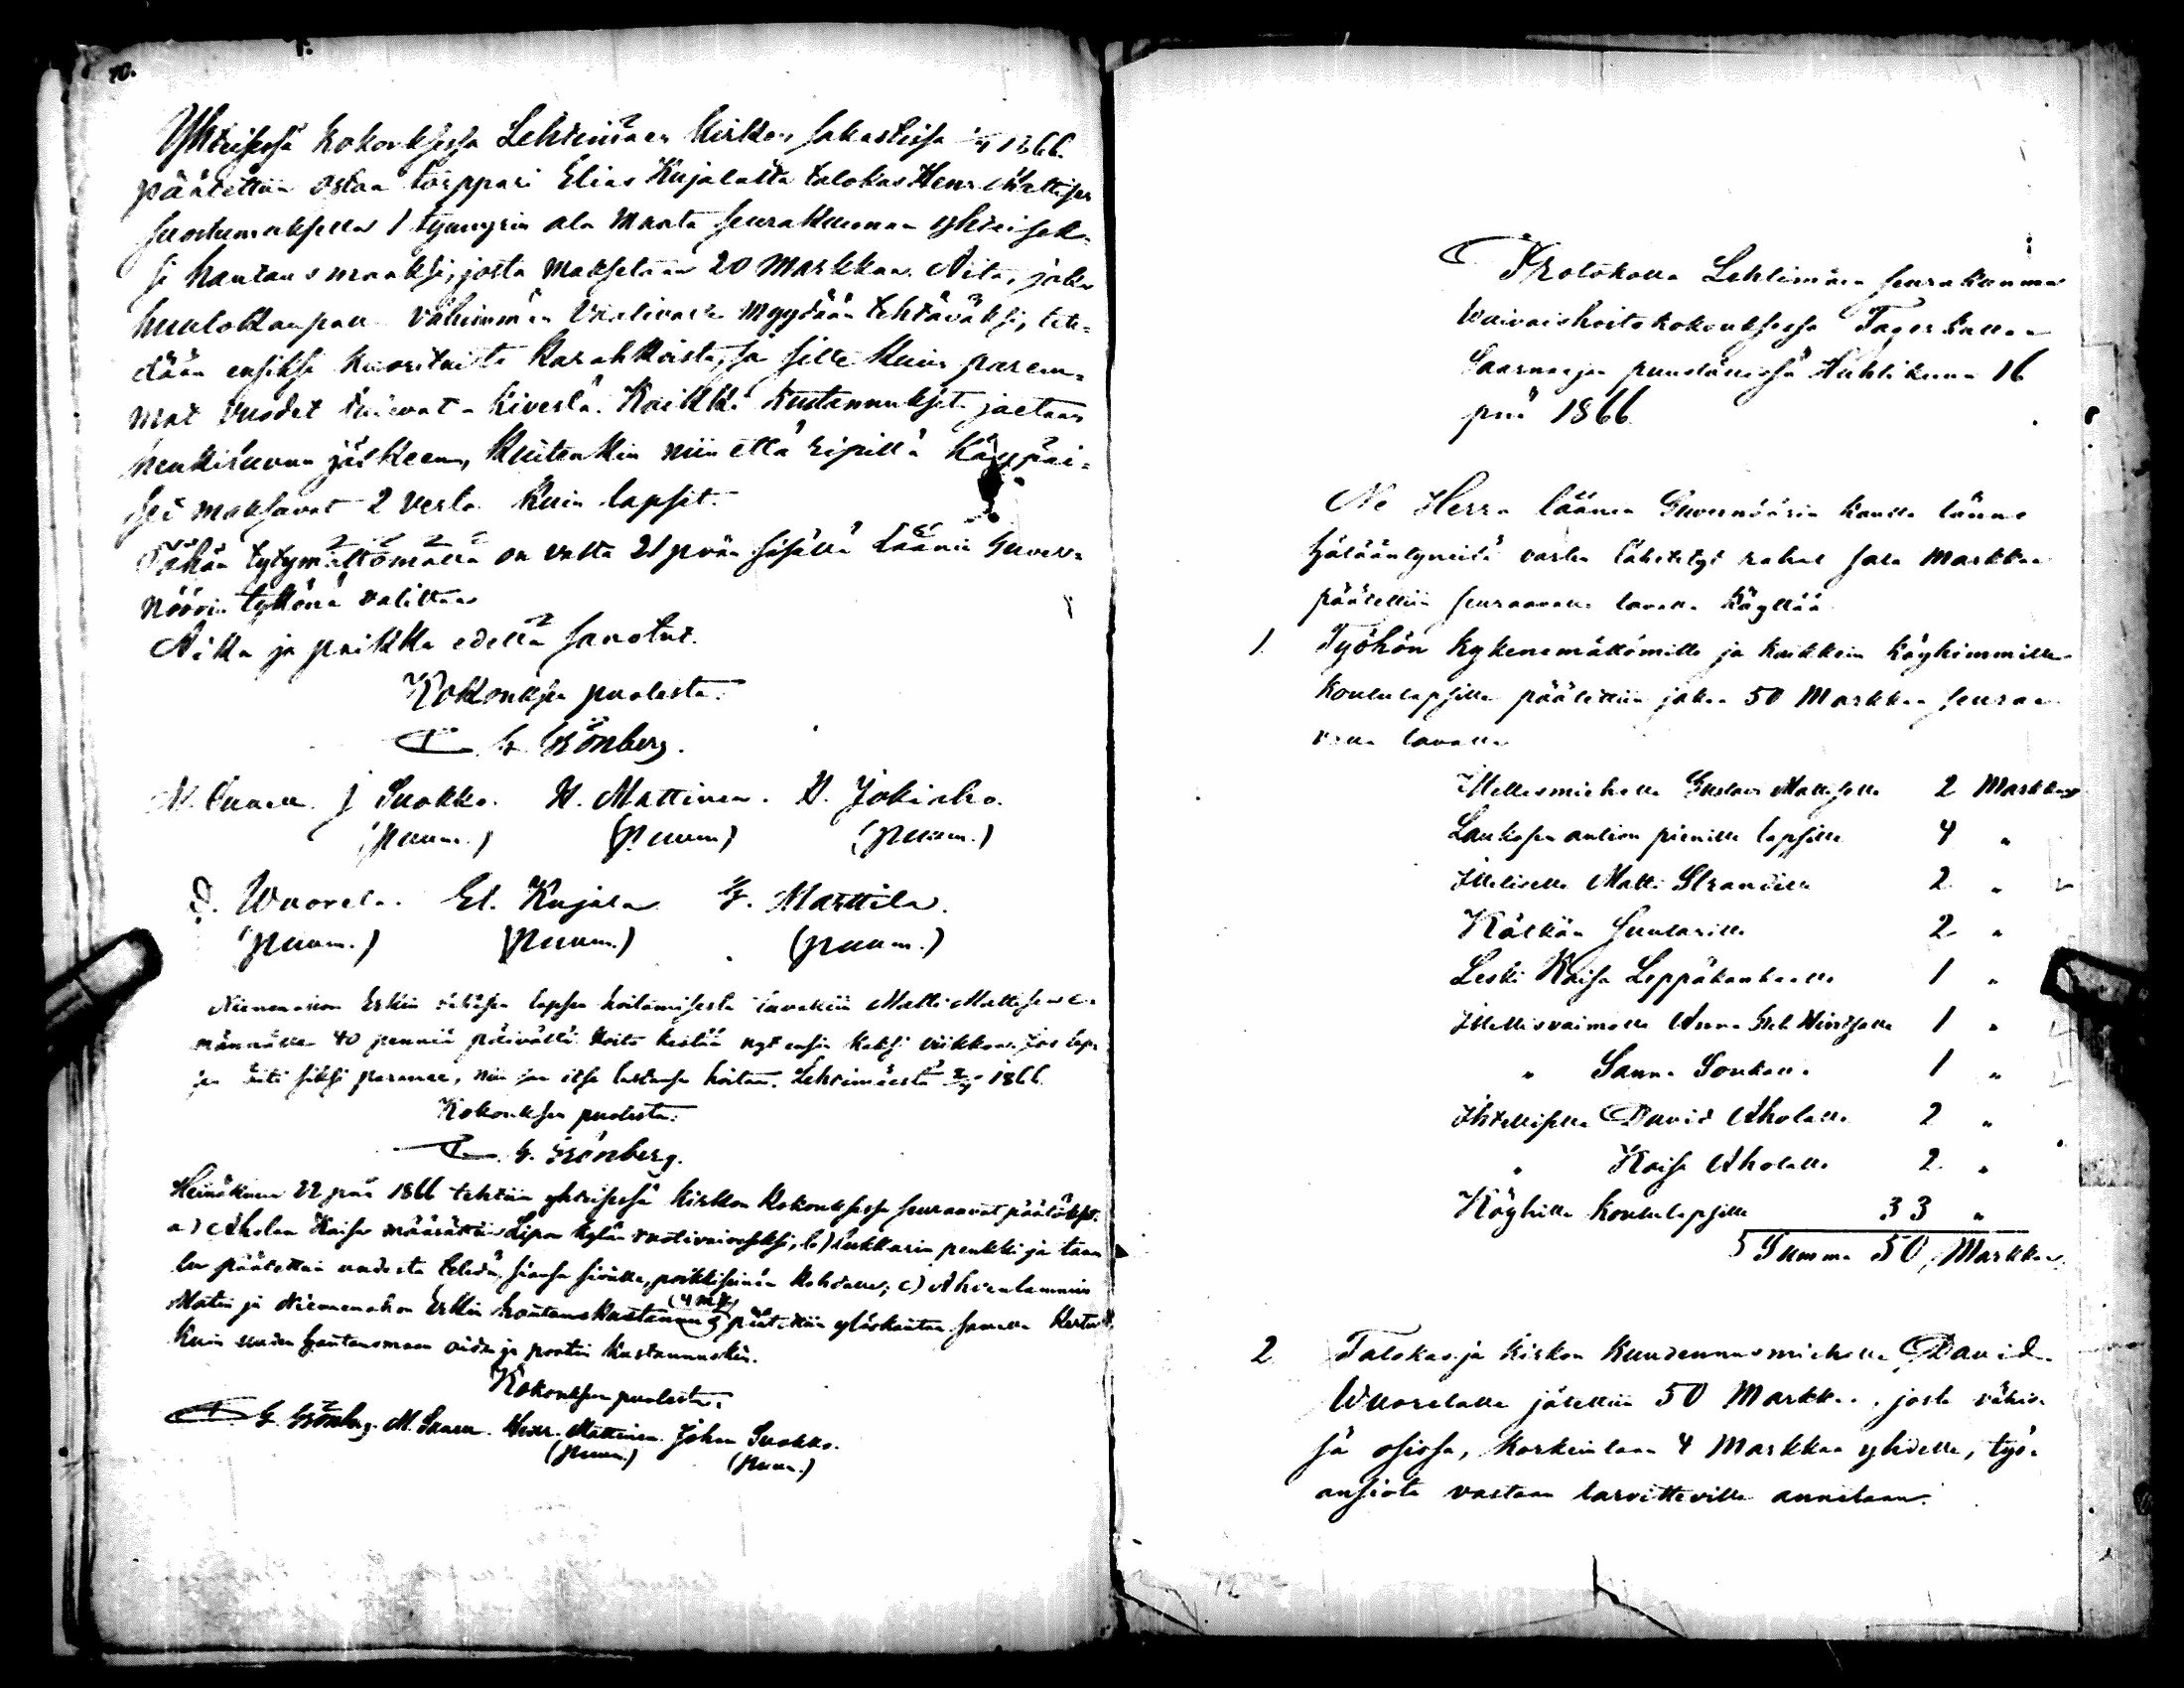 70.
Yhteisessä kokouksessa Lehtimäen kirkon sakastissa 1866.
päätettiin ostaa torppari Elias Kujalalta talokas Henr. Mattisen
suostumuksella 1 tynnyrin ala maata seurakunnan yhteisek-
si hautausmaaksi, josta maksetaan 20 Markkaa. Aita, joka
huutokaupan vähimmän vaativalle myydään tehtäväksi, teh-
dään ensiksi kuorituista karahkoista, ja sitte kuin parem-
mat vuodet tulevat kivestä. Kaikki kustannukset jaetaan
henkiluvun jälkeen, kuitenkin niin että ripillä käypäi-
set maksavat 2 verta kuin lapset.
Tähän tytymättömällä on valta 21 pvän sisällä Läänin Guver-
nöörin tykönä valittaa
Aika ja paikka edellä sanotut.
Kokouksen puolesta:
G. Grönberg.
M. Saari. J. Suokko. H. Mattinen. H. Jokiaho.
(puum.) (puum.) (puum.)
D. Wuorela. El. Kujala G. Marttila.
(puum.) (puum.) (puum.)
Niemenahon Erkin lapsen hoitamisesta luvattiin Matti Mattisen e-
männälle 40 penniä päivältä. Hoito kestää nyt ensin kaksi viikkoa. Jos lap-
sen äiti siksi paranee, niin saa itse lastansa hoitaa. Lehtimäestä 1866.
Kokouksen puolesta:
G. Grönberg.
Heinäkuun 22 pnä 1866 tehtiin yhteisessä kirkon kokouksessa seuraavat päätökset:
a) Aholan Kaisa määrättiin Lipon kylän ruotivaivaseksi, b) lukkarin penkki ja taau
lu päätettiin uudesta tehdä, siansa sivulle, poikkiseinän kohdalle; c) Ahvenlammin
Matin ja Niemenahon Erkin hautauskustannus (4 mk) päätettiin yläskantaa samalla kertaa
kuin uuden hautausmaan aidan ja portin kustannuskin.
Kokouksen puolesta:
G. Grönberg. M. Saari. Henr. Mattinen. Johan Suokko.
(puum.) (puum.)
Protokolla Lehtimäen seurakunnan
Waivaishoitokokouksessa Fagerkullan
Saarnaajan puustellissa Huhtikuun 16
pnä 1866.
Ne Herra läänin Guvernöörin kautta tänne
hätääntyneitä varten lähetetyt rahat sata Markkaa
päätettiin seuraavalla tavalla käyttää
1. Työhön kykenemättömille ja kaikkein köyhimmille
koululapsille päätettiin jakaa 50 Markkaa seuraa-
valla tavalla
Itellismiehelle Gustav Mattiselle 2 Markkaa
Laukosen aution pienille lapsille 4 "
Itelliselle Matti Strandille 2 "
Kätkän suutarille 2 "
Leski Kaisa Leppäkankaalle 1 "
Itellisvaimolle Anna 1 "
" Sanna Soukalle 1 "
Ihtelliselle David Aholalle 2 "
" Kaisa Aholalle 2 "
Köyhille koululapsille 33 "
Summa 50 Markkaa
2 Talokas ja kirkon kuudennusmiehelle David
Wuorelalle jätettiin 50 Markkaa, josta vähis-
sä osissa, korkeintaan 4 Markkaa yhdelle, työ-
ansiota vastaan tarvitseville annetaan.